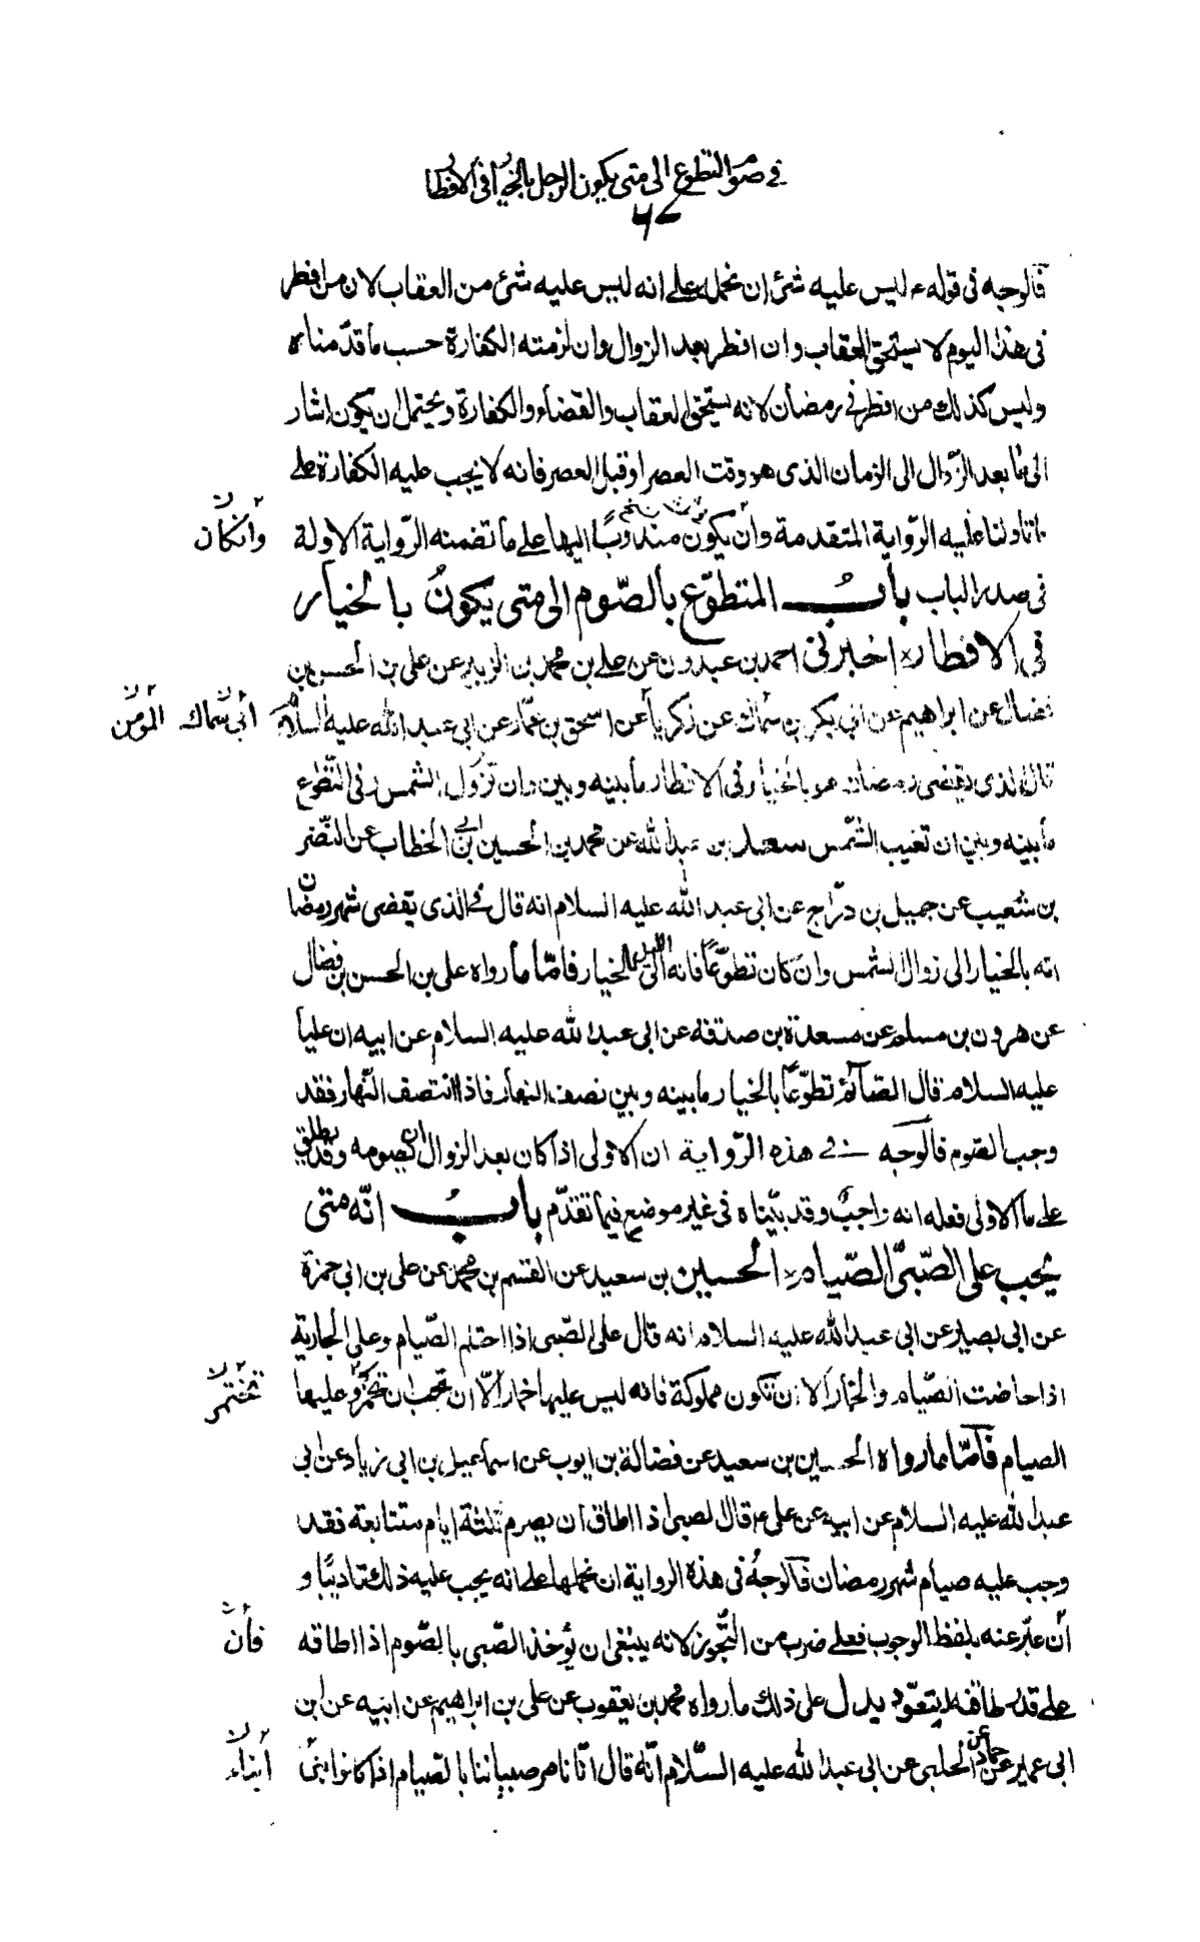 في صوم التطوع الى متى يكون الرجل بالخيار في الافطار
٦٧
فالوجه في قوله ع ليس عليه شئ ان نحمله على انه ليس عليه شئ من العقاب لان من افطر
في هذا اليوم لا يستحق العقاب وان افطر بعد الزوال وان لزمته الكفارة حسب ما قدّمناه
وليس كذلك من افطر في رمضان لانه يستحق العقاب والقضاء والكفارة ويحتمل ان يكون اشار
الى ما بعد الزّوال الى الزمان الذى هو وقت العصر او قبل العصر فانه لا يجب عليه الكفارة على
ما دلنا عليه الرّواية المتقدمة وأن يكون مندوبًا اليها على ما تضمنه الرّواية الاولة
وأن كان
في صدر الباب بابُ المتطوّع بالصّوم الى متى يكونُ بالخيار
في الافطار اخبرنى احمد بن عبدون عن على بن محمد بن الزبير عن على بن الحسن بن
فضال عن ابراهيم عن ابى بكر بن سماك عن زكريا عن اسحق بن عمّار عن ابى عبد الله عليه السلام
ابى سماك المؤمن
قال الذى يقضى رمضان هو بالخيار فى الافطار ما بينه وبين ان تزول الشمس وفى التّطوع
ما بينه وبين ان تغيب الشّمس سعد بن عبد الله عن محمد بن الحسين بن ابى الخطاب عن النّضر
بن شعيب عن جميل بن درّاج عن ابى عبد الله عليه السلام انه قال في الذى يقضى شهر رمضان
انه بالخيار الى زوال الشمس وان كان تطوّعًا فانه الى الليل بالخيار فامّا ما رواه على بن الحسن بن فضال
عن هرون بن مسلم عن مسعدة بن صدقة عن ابى عبد الله عليه السلام عن ابيه ان عليا
عليه السلام قال الصّائم تطوّعًا بالخيار ما بينه وبين نصف النهار فاذا انتصف النّهار فقد
وجب الصّوم فالوجه في هذه الرّواية ان الاولى اذا كان بعد الزوال ان يصومه وقد يطلق
على ما الاولى فعله انه واجبٌ وقد بيّناه فى غير موضع فيما تقدّم بابُ انّه متى
يجب على الصّبىّ الصّيام الحسين بن سعيد عن القسم بن محمد عن على بن ابى حمزة
عن ابى بصير عن ابى عبد الله عليه السلام انه قال على الصّبى اذا احتلم الصّيام وعلى الجارية
اذا حاضت الصّيام والخمار الا ان تكون مملوكة فانه ليس عليها خمار الّا ان تحب ان تختمر وعليها
تختمر
الصيام فامّا ما رواه الحسين بن سعيد عن فضالة بن ايوب عن اسماعيل بن ابى زياد عن ابى
عبد الله عليه السلام عن ابيه عن على ع قال الصبى اذا اطاق ان يصوم ثلثة ايام متتابعة فقد
وجب عليه صيام شهر رمضان فالوجهُ فى هذه الرواية ان نحملها على انه يجب عليه ذلك تاديبًا و
أن عبّر عنه بلفظ الوجوب فعلى ضرب من التّجوز لانه ينبغى ان يؤخذ الصّبى بالصّوم اذا اطاقه
فأن
على قدر طاقته ليتعوّد يدل على ذلك ما رواه محمد بن يعقوب عن على بن ابراهيم عن ابيه عن ابن
ابى عمير عن حماد عن الحلبى عن ابى عبد الله عليه السّلام انّه قال انّا نامر صبياننا بالصّيام اذا كانوا بنى
أبناء